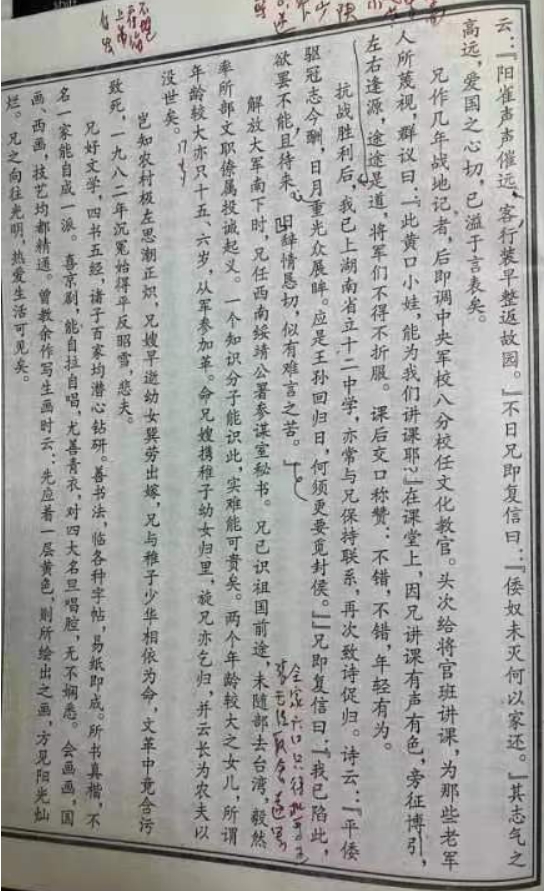 云：『阳雀声声催远，客行装早整返故园。』不日兄即复信曰：『倭奴未灭何以家还。』其志气之
高远，爱国之心切，已溢于言表矣。
兄作几年战地记者，后即调中央军校八分校任文化教官。头次给将官班讲课，为那些老军
人所蔑视，群议曰：“此黄口小娃，能为我们讲课耶？”在课堂上，因兄讲课有声有色，旁征博引，
左右逢源，途途是道，将军们不得不折服。课后交口称赞：不错，不错，年轻有为。
抗战胜利后，我已上湖南省立十二中学，亦常与兄保持联系，再次致诗促归。诗云：『平倭
驱冠志今酬，日月重光众展眸。应是王孙回归日，何须更要觅封侯。』兄即复信曰：『我已陷此，
欲罢不能，且待来日』辞情恳切，似有难言之苦。
解放大军南下时，兄任西南绥靖公署参谋室秘书。兄已识祖国前途，未随部去台湾，毅然
率所部文职僚属投诚起义。一个知识分子能识此，实难能可贵矣。两个年龄较大之女儿，所谓
年龄较大亦只十五、六岁，从军参加革。命兄嫂携稚子幼女归里，旋兄亦乞归，并云长为农夫以
没世矣。
岂知农村极左思潮正炽，兄嫂早逝幼女巽劳出嫁，兄与稚子少华相依为命，文革中竟含污
致死，一九八二年沉冤始得平反昭雪，悲夫。
兄好文学，四书五经，诸子百家均潜心钻研。善书法，临各种字帖，易纸即成。所书真楷，不
名一家能自成一派。喜京剧，能自拉自唱，尤善青衣，对四大名旦唱腔，无不娴悉。会画画，国
画，西画，技艺均都精通。曾教余作写生画时云：先应着一层黄色，则所绘出之画，方见阳光灿
烂。兄之向往光明，热爱生活可见矣。